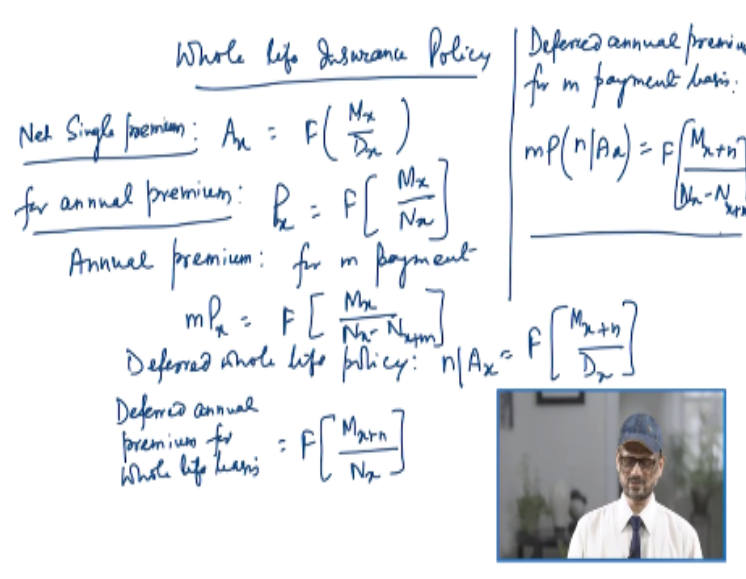 Whole life Insurance Policy
Net Single premium: Ax = F(Mx/Dx)
for annual premium: Px = F[Mx/Nx]
Annual premium: for m payment
mPx = F[Mx/Nx-Nx+m]
Deferred whole life policy: n|Ax = F[Mx+n/Dx]
Deferred annual
premium for
whole life basis = F[Mx+n/Nx]
Deferred annual premiu
for m payment basis:
mP(n|Ax) = F[Mx+n/Nx-Nx+m